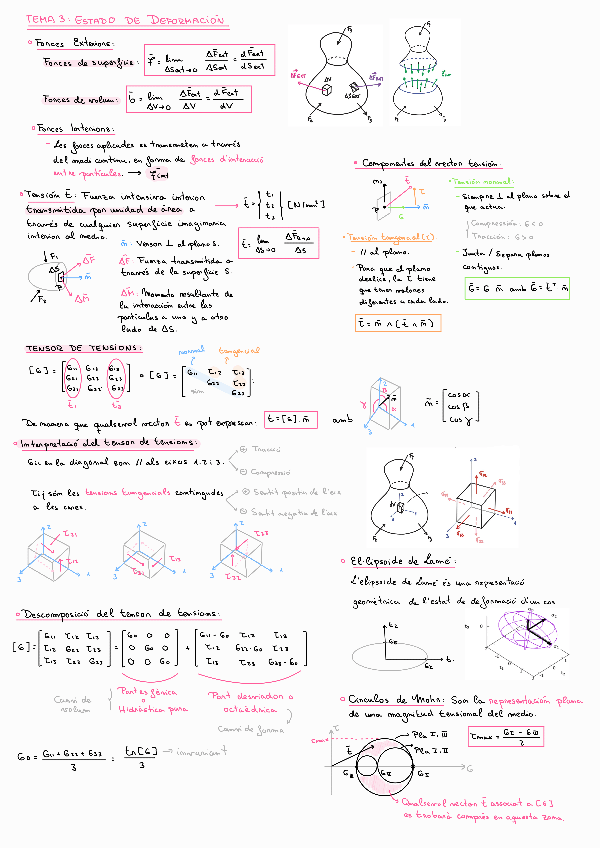 TEMA 3: ESTADO DE DEFORMACIÓN
Forces Exteriors:
Forces de superficie: f̄ = lim ΔSext→0 ΔF̄ext/ΔSext = dF̄ext/dSext
Forces de volum: b̄ = lim ΔV→0 ΔF̄ext/ΔV = dF̄ext/dV
Forces Interiors:
- Les forces aplicades es transmeten a través
del medi continu, en forma de forces d'interacció
entre partícules. →
Tensión t̄: Fuerza intensiva interior
transmitida por unidad de área a
través de cualquier superficie imaginaria
interior al medio.
t̄ = { t₁ t₂ t₃ } [N/mm²]
t̄ = lim ΔS→0 / ΔS
n̄: Versor ⊥ al plano S.
ΔF̄: Fuerza transmitida a
través de la superficie S.
ΔM̄: Momento resultante de
la interacción entre las
partículas a uno y a otro
lado de ΔS.
F₁
ΔS
ΔF̄
n̄
P
F₂
ΔM̄
Componentes del vector tensión:
Tensión normal:
- Siempre ⊥ al plano sobre el
que actúa.
Compresión: σ < 0
Tracción: σ > 0
Junta / Separa planos
contiguos.
σ̄ = σ n̄ amb σ = t̄ᵀ n̄
Tensión tangencial (τ)
- // al plano.
- Para que el plano
deslice, la τ tiene
que tener valores
diferentes a cada lado.
τ̄ = n̄ ∧ (t̄ ∧ n̄)
TENSOR DE TENSIONS:
normal tangencial
[σ] = [σ₁₁ σ₁₂ σ₁₃ σ₂₁ σ₂₂ σ₂₃ σ₃₁ σ₃₂ σ₃₃] o [σ] = [σ₁₁ τ₁₂ τ₁₃ σ₂₂ τ₂₃ sim σ₃₃]
De manera que qualsevol vector t̄ es pot expressar: t̄ = [σ] · n̄ amb
n̄ = [cos α cos β cos γ]
Interpretació del tensor de tensions:
σii en la diagonal son // als eixos 1, 2 i 3.
⊕ Tracció
⊖ Compressió
τij són les tensions tangencials contingudes
a les cares.
⊕ Sentit positiu de l'eix
⊖ Sentit negatiu de l'eix
El·lipsoide de Lamé:
L'el·lipsoide de Lamé és una representació
geométrica de l'estat de deformació d'un cos
Descomposició del tensor de tensions:
[σ] = [σ₁₁ τ₁₂ τ₁₃ τ₁₂ σ₂₂ τ₂₃ τ₁₃ τ₂₃ σ₃₃] = [σ₀ 0 0 0 σ₀ 0 0 0 σ₀] + [σ₁₁-σ₀ τ₁₂ τ₁₃ τ₁₂ σ₂₂-σ₀ τ₂₃ τ₁₃ τ₂₃ σ₃₃-σ₀]
Canvi de
volum
Part esférica
o
Hidrostàtica pura
Part desviadora o
octaèdrica
Canvi de forma
σ₀ = σ₁₁ + σ₂₂ + σ₃₃ / 3 = tr[σ] / 3 → invariant
Círculos de Mohr: Son la representación plana
de una magnitud tensional del medio.
τmax
Pla I, III
Pla I, II
τmax = σI - σIII / 2
Qualsevol vector t̄ associat a [σ]
es trobarà comprès en aquesta zona.